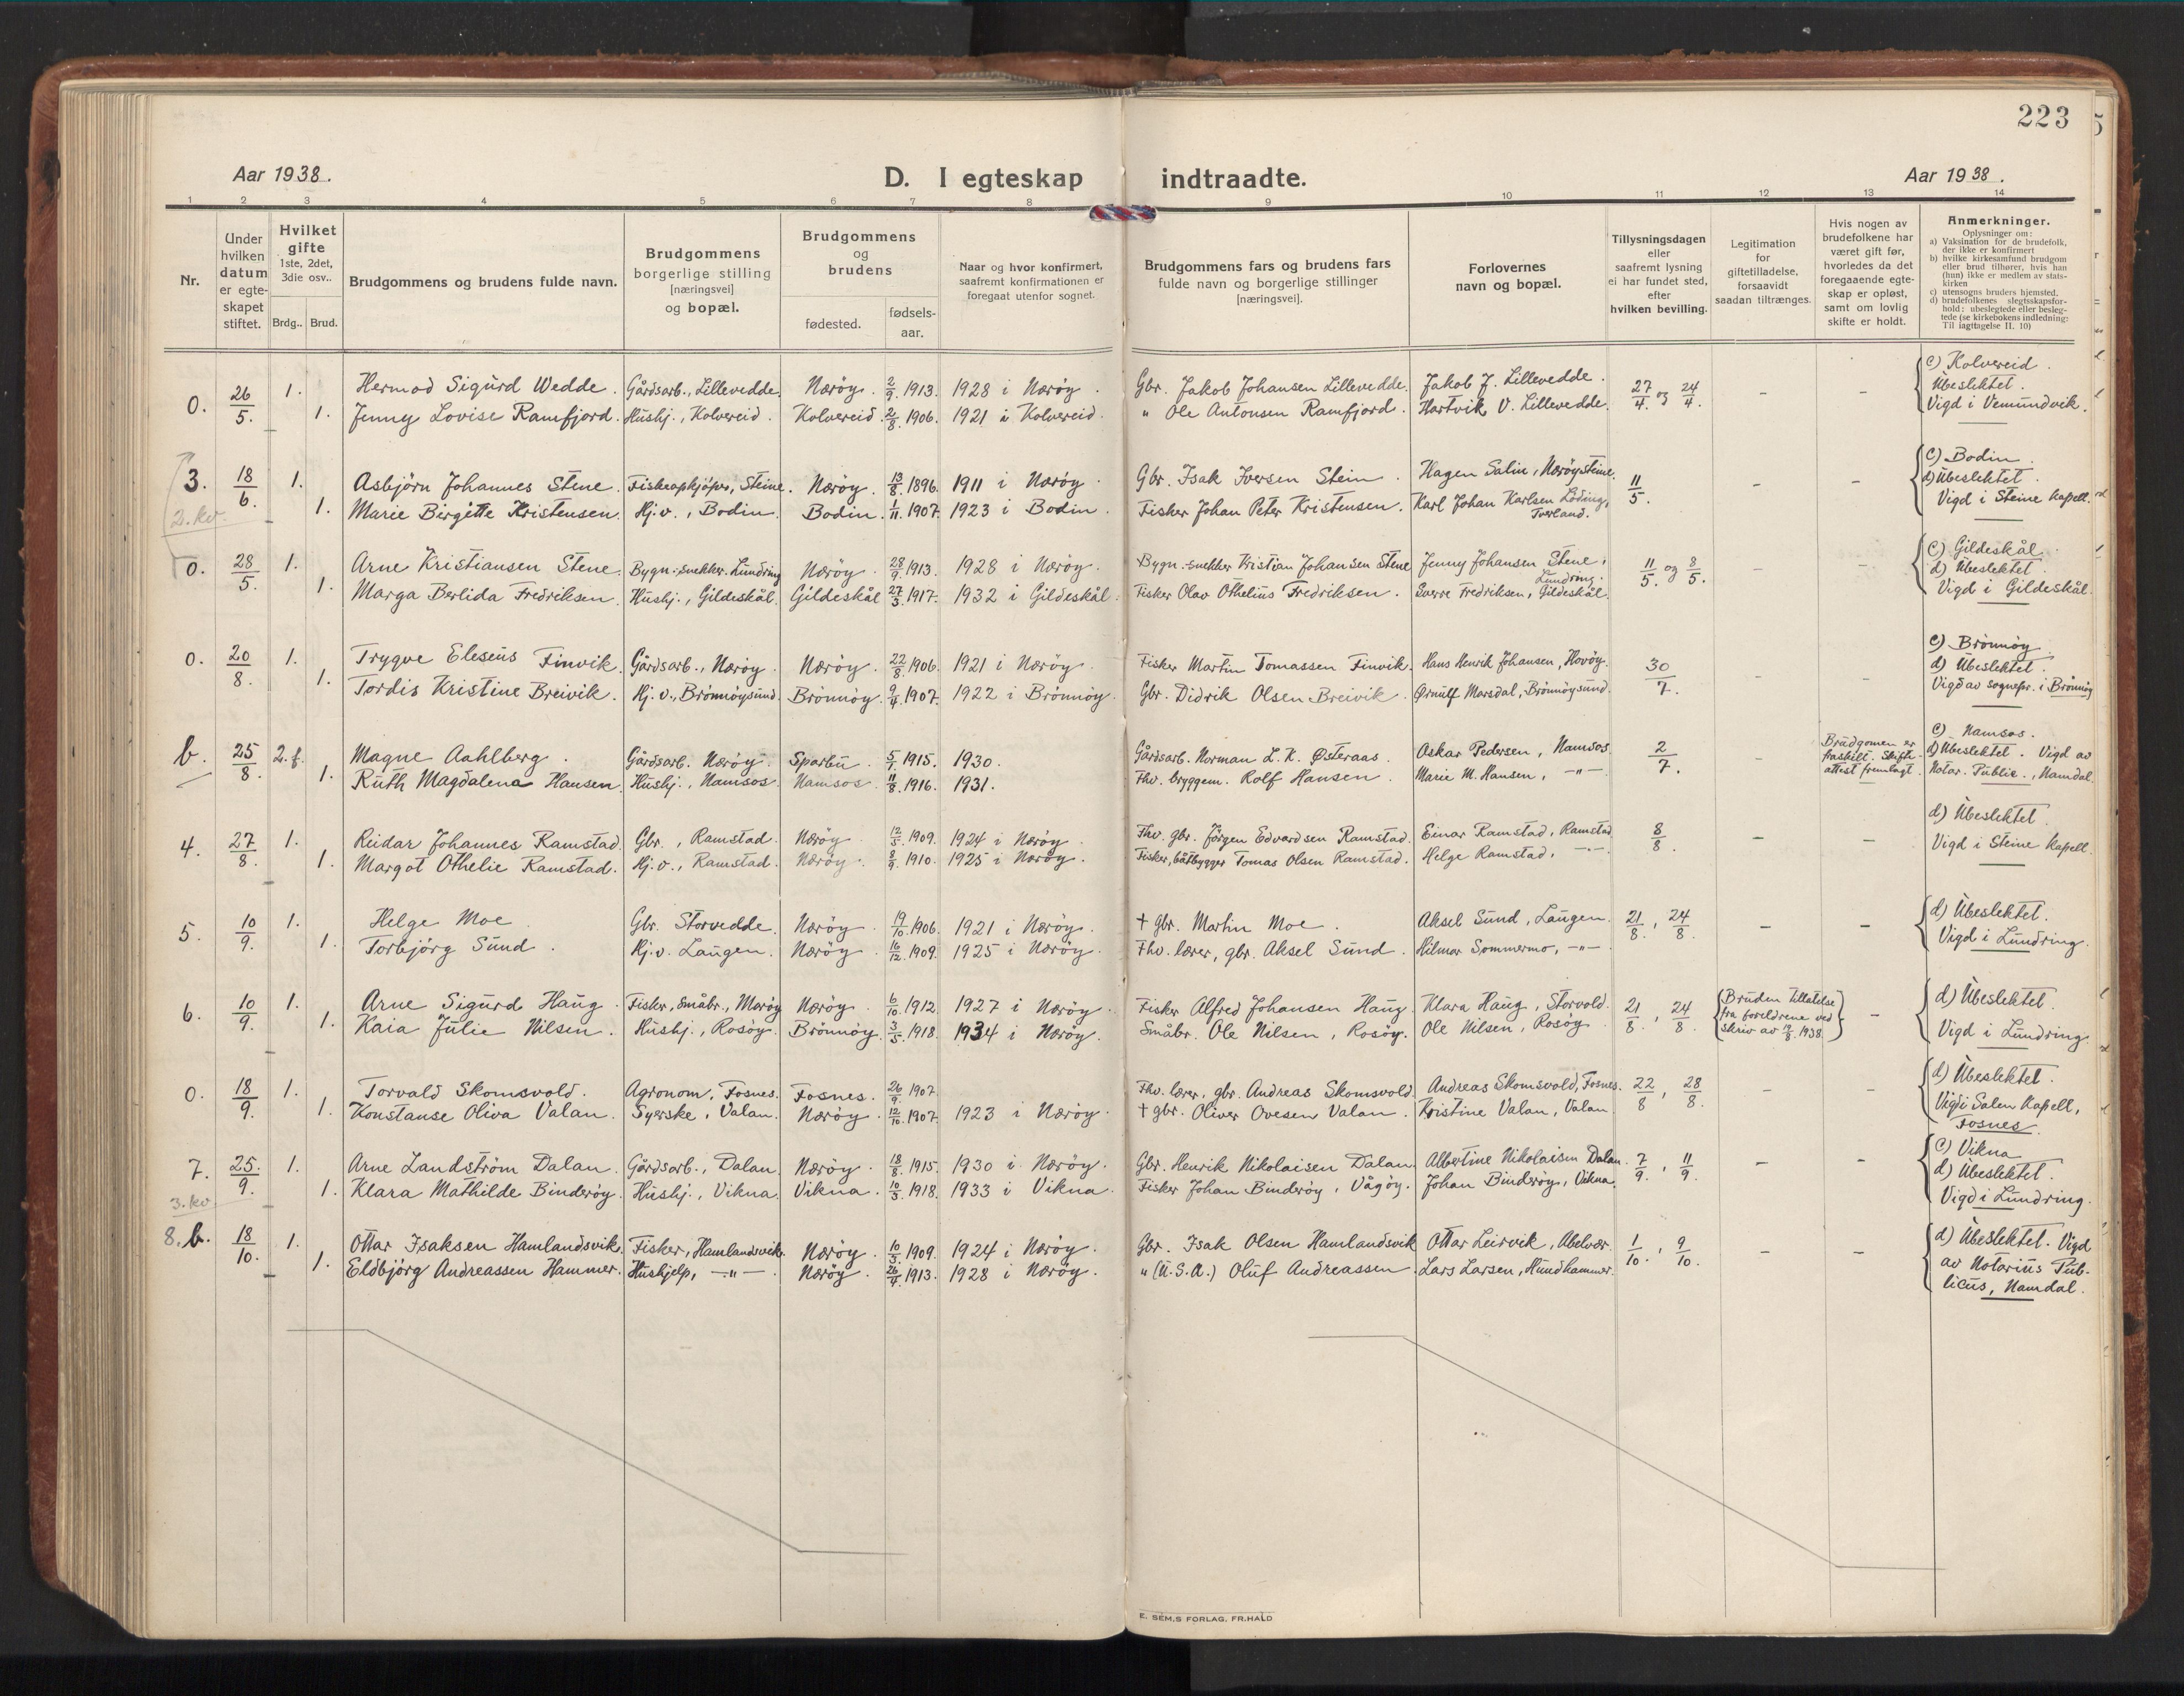 223
Aar 1938.
D. I egteskap indtraadte.
Aar 1938.
1 2 3 4 5 6 7 8 9 10 11 12 13 14
Nr.
Under hvilken datum er egte-skapet stiftet.
Hvilket gifte
1ste, 2det, 3die osv..
Brdg.. Brud.
Brudgommens og brudens fulde navn.
Brudgommens borgerlige stilling [næringsvei] og bopæl.
Brudgommens og brudens
fødested.
fødsels-aar.
Naar og hvor konfirmert, saafremt konfirmationen er foregaat utenfor sognet.
Brudgommens fars og brudens fars fulde navn og borgerlige stillinger [næringsvei].
Forlovernes navn og bopæl.
Tillysningsdagen eller saafremt lysning ei har fundet sted, efter hvilken bevilling.
Legitimation for giftetilladelse, forsaavidt saadan tiltrænges.
Hvis nogen av brudefolkene har været gift før, hvorledes da det foregaaende egte-skap er opløst, samt om lovlig skifte er holdt.
Anmerkninger.
Oplysninger om:
a) Vaksination for de brudefolk, der ikke er konfirmert
b) hvilke kirkesamfund brudgom eller brud tilhører, hvis han (hun) ikke er medlem av stats-kirken
c) utensogns bruders hjemsted.
d) brudefolkenes slegtsskapsfor-hold: ubeslegtede eller besleg-tede (se kirkebokens indledning: Til iagttagelse II. 10)
0. 26/5. 1. Hermod Sigurd Wedde. Gårdsarb., Lillevedde. Nærøy. 2/9. 1913. 1928 i Nærøy. Gbr. Jakob Johansen Lillevedde. Jakob J. Lillevedde. 27/4. og 24/4. – – c) Kolvereid. Ubeslektet.
1. Jenny Lovise Ramfjord. Hushj., Kolvereid. Kolvereid. 2/8. 1906. 1921 i Kolvereid. " Ole Antonsen Ramfjord. Hartvik V. Lillevedde. Vigd i Vemundvik.
3. 18/6. 1. Asbjørn Johannes Stene. Fiskeopkjøper, Steine. Nærøy. 13/8. 1896. 1911 i Nærøy. Gbr. Isak Iversen Stein. Hagen Salin, Nærøysteine. 11/5. – – c) Bodin. d) Ubeslektet.
2. kv 1. Marie Birgitte Kristensen. Hj.v., Bodin. Bodin. 1/11. 1907. 1923 i Bodin. Fisker Johan Peter Kristensen. Karl Johan Karlsen Løding, Tverland. Vigd i Steine kapell.
0. 28/5. 1. Arne Kristiansen Stene. Bygn.-snekker. Lundring Nærøy. 28/9. 1913. 1928 i Nærøy. Bygn.-snekker Kristian Johansen Stene Jenny Johansen Stene, Lundring. 11/5. og 8/5. – – c) Gildeskål. d) Ubeslektet.
1. Marga Berlida Fredriksen. Hushj., Gildeskål. Gildeskål 27/3. 1917. 1932 i Gildeskål. Fisker Olav Othelius Fredriksen. Sverre Fredriksen, Gildeskål. Vigd i Gildeskål.
0. 20/8. 1. Trygve Eleseus Finvik. Gårdsarb., Nærøy. Nærøy. 22/8. 1906. 1921 i Nærøy. Fisker Martin Tomassen Finvik. Hans Henrik Johansen, Hovøy. 30/7. – – c) Brønnøy. d) Ubeslektet.
1. Tordis Kristine Breivik. Hj.v., Brønnøysund. Brønnøy. 9/4. 1907. 1922 i Brønnøy. Gbr. Didrik Olsen Breivik. Ørnulf Marsdal, Brønnøysund. Vigd av sognepr. i Brønnøy
b. 25/8. 2.f. Magne Aahlberg. Gårdsarb. Nærøy. Sparbu. 1915. 1930. Gårdsarb. Norman L. K. Østeraas. Oskar Pedersen, Namsos. 2/7. – Brudgomen er fraskilt. Skifte attest fremlagt. c) Namsos. d) Ubeslektet. Vigd av
1. Ruth Magdalena Hansen. Hushj., Namsos. Namsos. 11/8. 1916. 1931. Fhv. bryggem. Rolf Hansen. Marie M. Hansen, –"– Notar. Public., Namdal.
4. 27/8. 1. Reidar Johannes Ramstad. Gbr., Ramstad. Nærøy. 12/5. 1909. 1924 i Nærøy. Fhv. gbr. Jørgen Edvardsen Ramstad. Einar Ramstad, Ramstad. 8/8. – – d) Ubeslektet.
1. Margot Othelie Ramstad. Hj.v., Ramstad. Nærøy. 8/9. 1910. 1925 i Nærøy. Fisker, båtbygger Tomas Olsen Ramstad. Helge Ramstad, –"– Vigd i Steine kapell.
5. 10/9. 1. Helge Moe. Gbr. Storvedde. Nærøy. 19/10. 1906. 1921 i Nærøy. † gbr. Martin Moe. Aksel Sund, Laugen. 21/8., 24/8. – – d) Ubeslektet.
1. Torbjørg Sund. Hj.v. Laugen. Nærøy. 16/12. 1909. 1925 i Nærøy. Fhv. lærer, gbr. Aksel Sund. Hilmar Sommermo, –"– Vigd i Lundring.
6. 10/9. 1. Arne Sigurd Haug. Fisker, Småbr., Nærøy Nærøy. 6/10. 1912. 1927 i Nærøy. Fisker Alfred Johansen Haug. Klara Haug, Storvold. 21/8., 24/8. Bruden tillatelse fra foreldrene ved skriv av 19/8. 1938. – d) Ubeslektet.
1. Kaia Julie Nilsen. Hushj., Rosøy. Brønnøy. 3/5. 1918. 1934 i Nærøy. Småbr. Ole Nilsen, Rosøy. Ole Nilsen, Rosøy. Vigd i Lundring.
0. 18/9. 1. Torvald Skomsvold. Agronom, Fosnes. Fosnes. 26/9. 1907. Fhv. lærer, gbr. Andreas Skomsvold. Andreas Skomsvold, Fosnes. 22/8, 28/8. – – d) Ubeslektet.
1. Konstanse Oliva Valan. Syerske, Valan. Nærøy. 12/10. 1907. 1923 i Nærøy. † gbr. Oliver Ovesen Valan. Kristine Valan, Valan. Vigd i Salen Kapell, Fosnes.
7. 25/9. 1. Arne Landstrøm Dalan. Gårdsarb., Dalan. Nærøy. 18/8. 1915. 1930 i Nærøy. Gbr. Henrik Nikolaisen Dalan. Albertine Nikolaisen Dalan. 7/9., 11/9. – – c) Vikna d) Ubeslektet.
3. kv 1. Klara Mathilde Binderøy. Hushj., Vikna. Vikna. 10/3. 1918. 1933 i Vikna. Fisker Johan Binderøy, Vågøy. Johan Binderøy, Vikna. Vigd i Lundring.
8. b. 18/10. 1. Ottar Isaksen Hamlandsvik. Fisker, Hamlandsvik. Nærøy. 10/3. 1909. 1924 i Nærøy. Gbr. Isak Olsen Hamlandsvik Ottar Leirvik, Abelvær. 1/10., 9/10. – – d) Ubeslektet. Vigd
1. Eldbjørg Andreassen Hammer. Hushjelp, –"– Nærøy. 1913. 1928 i Nærøy. " (U.S.A.) Oluf Andreassen. Lars Larsen, Hundhammer. av Notarius Pub-licus, Namdal.
E. SEM,S FORLAG, FR.HALD